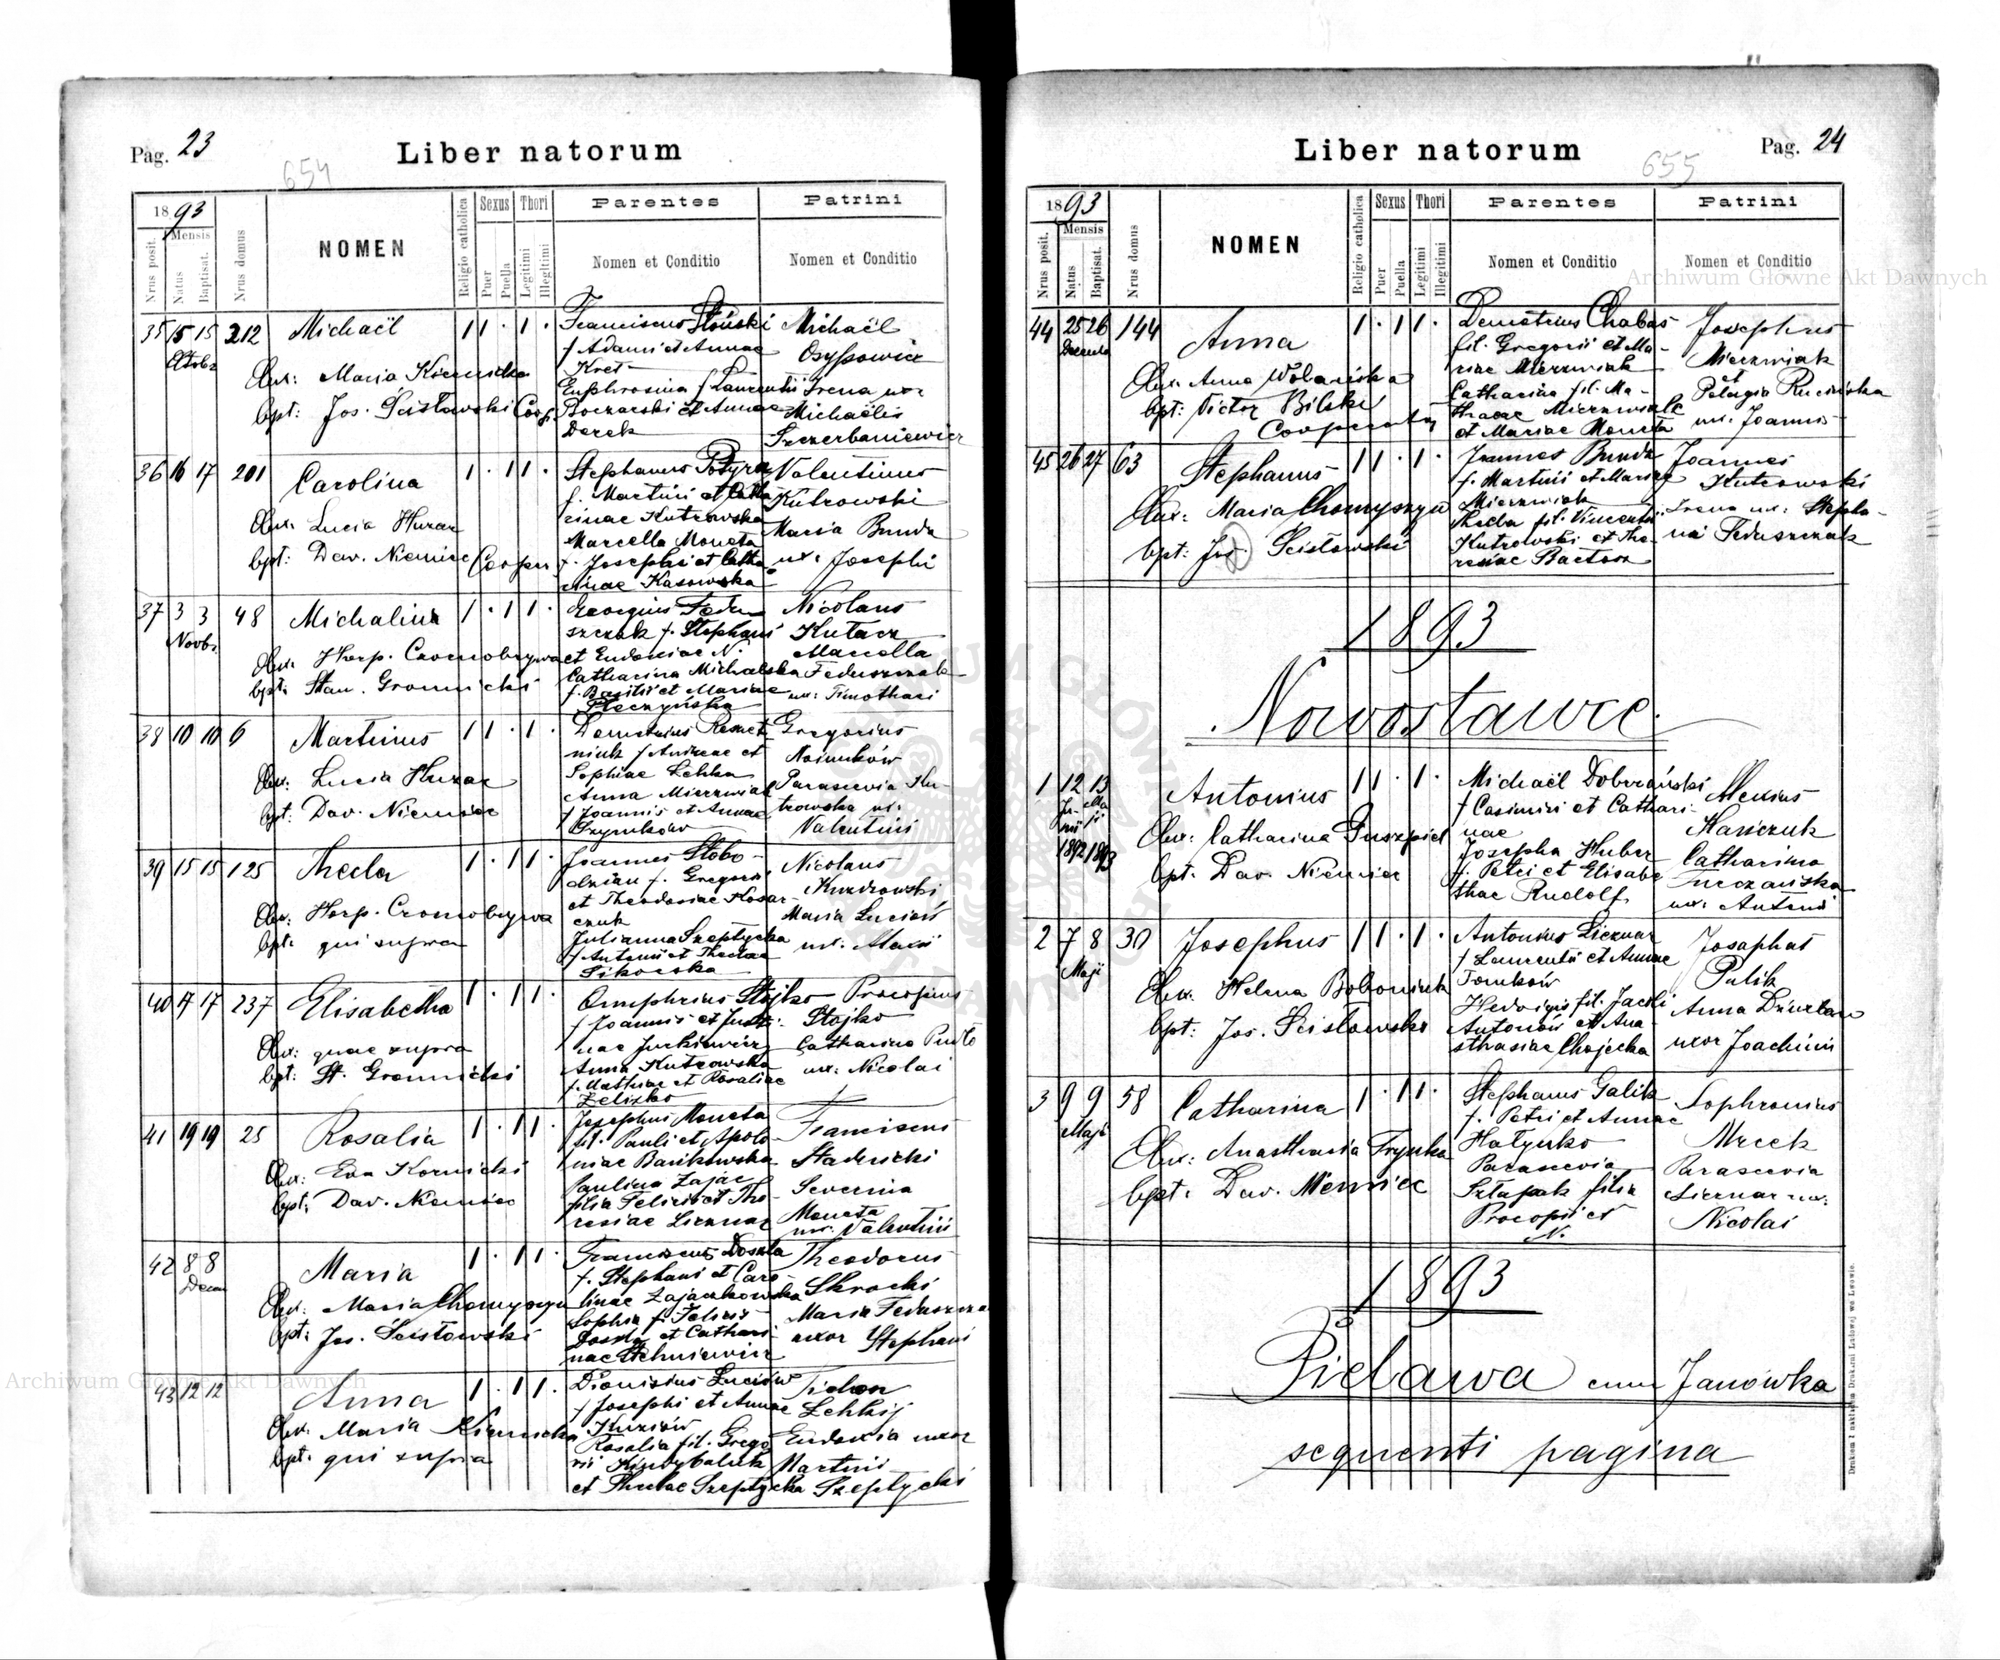 Pag. 23
654
Liber natorum
1893
Mensis
Nrus posit.
Natus
Baptisat.
Nrus domus
NOMEN
Religio catholica
Sexus
Puer
Puella
Thori
Legitimi
Illegitimi
Parentes
Nomen et Conditio
Patrini
Nomen et Conditio
35 15 15 212 Michaël 1 1 · 1 ·
Octobr
Obst: Maria
bpt: Jos. Ścisłowski Coop.
Franciscus Słoński
f Adami et Annae
Kret
Euphrosina f Laurentii
et Annae
Derek
Michaël
Osyfsowicz
Irena uxr
Michaëlis
Szczerbaniewicz
36 16 17 201 Carolina 1 · 1 1 ·
Obst. Lucia Huzar
bpt: Dav. Niemiec Cooper
Stephanus Potyra
f. Martini et Catha
rinae Kutrowska
Marcella Moneta
f. Josephi et Catha
rinae Kasowska
Valentinus
Kutrowski
Maria Bunda
ux. Josephi
37 3 3 48 Michalina 1 · 1 1 ·
Novbr
Obst. Horp. Czornobrywa
bpt: Stan. Gromnicki
Georgius Fedu
szczak f. Stephani
et Eudociae N.
Catharina Michalska
f. Basilii et Mariae
Pleczyńska
Nicolaus
Kutacz
Marcella
Feduszczak
ux: Timothaei
38 10 10 6 Martinus 1 1 · 1 ·
Obst: Lucia Huzar
bpt: Dav. Niemiec
niuk f Andreae et
Sophiae Lehka
Anna Mierzwiak
f Joannis et Annae
Szymków
Gregorius
Naimków
Parascevia Ku-
trowska ux.
Valentini
39 15 15 125 Thecla 1 · 1 1 ·
Obst: Horp. Czornobrywa
bpt: qui supra
Joannes Słobo-
dzian f. Gregorii
et Theodosiae Kosar-
czuk
Julianna Szeptycka
f Antonii et Theclae
Sikorska
Nicolaus
Kuzdrowski
Maria Luciów
ux. Maxi
40 17 17 237 Elisabetha 1 · 1 1 ·
Obst: quae supra
bpt: St. Gromnicki
Onuphrius Stojko
f Joannis et Justi-
nae Jurkiewicz
Anna Kutrowska
f. Mathiae et Rosaliae
Żeliszko
Procopius
Stojko
Catharina
ux. Nicolai
41 19 19 25 Rosalia 1 · 1 1 ·
Obst: Eva Kornicki
bpt: Dav. Niemiec
Josephus Moneta
fil. Pauli et Apolo
niae Bańkowska
Paulina Zając
filia Felicis et The
resiae Lieznar
Franciscus
Stadnicki
Severina
Moneta
ux. Valentini
42 8 8 Maria 1 · 1 1 ·
Decem
Obst: Maria Chomyszyn
bpt: Jos. Ścisłowski
Franciscus Doszla
f. Stephani et Caro-
linae Zajączkowska
Sophia f. Felicis
Doszla et Cathari-
nae Stehniewicz
Theodorus
Skrocki
Maria Feduszcza
uxor Stephani
43 12 12 Anna 1 · 1 1 ·
Obst. Maria
bpt: qui supra
Dionisius Luciów
f Josephi et Annae
Kuzców
Rosalia fil. Grego
rii Kindybaluk
et Theclae Szeptycka
Tichon
Lehkij
Eudoxia uxor
Martini
Szeptycki
Liber natorum
Pag. 24
655
1893
Mensis
Nrus posit.
Natus
Baptisat.
Nrus domus
NOMEN
Religio catholica
Sexus
Puer
Puella
Thori
Legitimi
Illegitimi
Parentes
Nomen et Conditio
Patrini
Nomen et Conditio
44 25 26 144 Anna 1 · 1 1 ·
Obst. Anna Wolańska
bpt: Victor Bilski
Cooperator
Demetrius Chabas
fil. Gregorii et Ma-
riae Mierzwiak
Catharina fil. Ma-
thaeae Mierzwiak
et Mariae Moneta
Josephus
Mierzwiak
et
Pelagia Rucińska
ux. Joannis
45 26 27 63 Stephanus 1 1 · 1 ·
Obst: Maria Chomyszyn
bpt: Jos. Ścisłowski
Joannes Bunda
f. Martini et Mariae
Mierzwiak
Thecla fil. Vincentii
Kutrowski et The-
resiae Bactosz
Joannes
Kutrowski
Irena ux: Stepha-
ni Feduszczak
1893
Nowostawce
1 12 13 Antonius 1 1 · 1 ·
Junii Maji
1892 1893
Obst: Catharina
bpt. Dav. Niemiec
Michaël Dobrzański
f Casimiri et Cathari-
nae
Josepha Huber
f. Petri et Elisabe
thae Rudolf
Alexius
Hanczuk
Catharina
Turczańska
ux. Antoni
2 7 8 30 Josephus 1 1 · 1 ·
Maji
Obst. Helena Boboniuk
bpt: Jos. Ścisłowski
Antonius Lieznar
f Laurentii et Annae
Tomków
Hedvigis fil. Jacobi
Antonów et Ana-
sthasiae Chojecka
Josaphat
Pulik
uxor Joachimi
3 9 9 58 Catharina 1 · 1 1 ·
Maji
Obst: Anasthasia Trynka
bpt: Dav. Niemiec
Stephanus Galik
f. Petri et Annae
Hałynko
Parascevia
Sztapak filia
Procopii et
N.
Sophronius
Mrcek
Parascevia
Lieznar ux.
Nicolai
1893
Pielawa cum Janówka
sequenti pagina
Drukiem i nakładem Drukarni Ludowej we Lwowie.
Archiwum Główne Akt Dawnych
Archiwum Główne Akt Dawnych